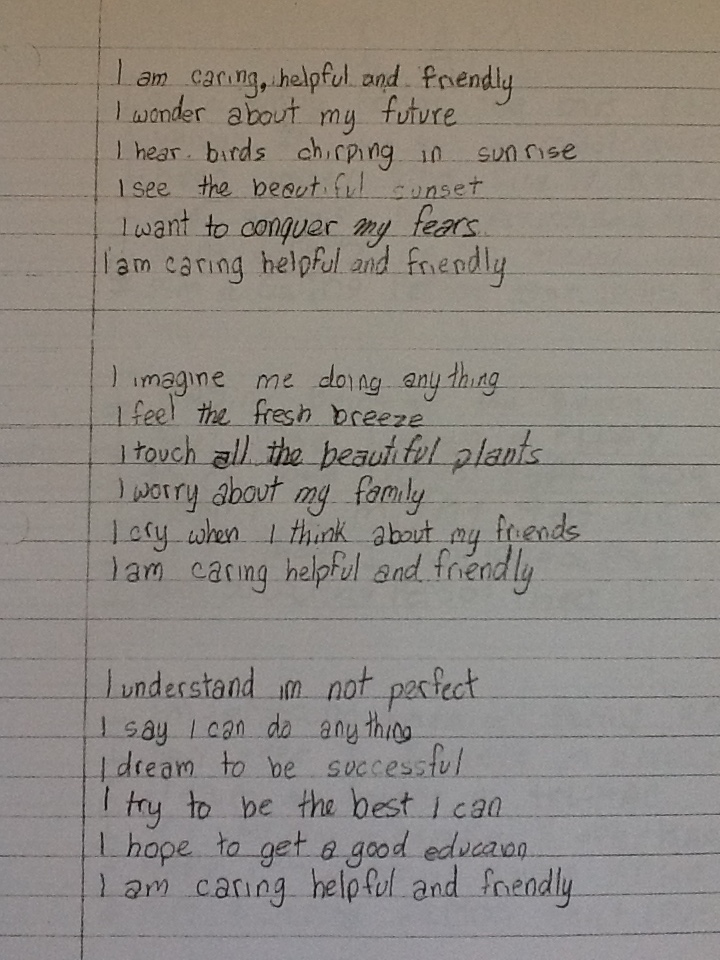 I am caring, helpful and friendly
I wonder about my future
I hear birds chirping in sunrise
I see the beautiful sunset
I want to conquer my fears
I am caring helpful and friendly
I imagine me doing anything
I feel the fresh breeze
I touch all the beautiful plants
I worry about my family
I cry when I think about my friends
I am caring helpful and friendly
I understand im not perfect
I say I can do anything
I dream to be successful
I try to be the best I can
I hope to get a good educaion
I am caring helpful and friendly